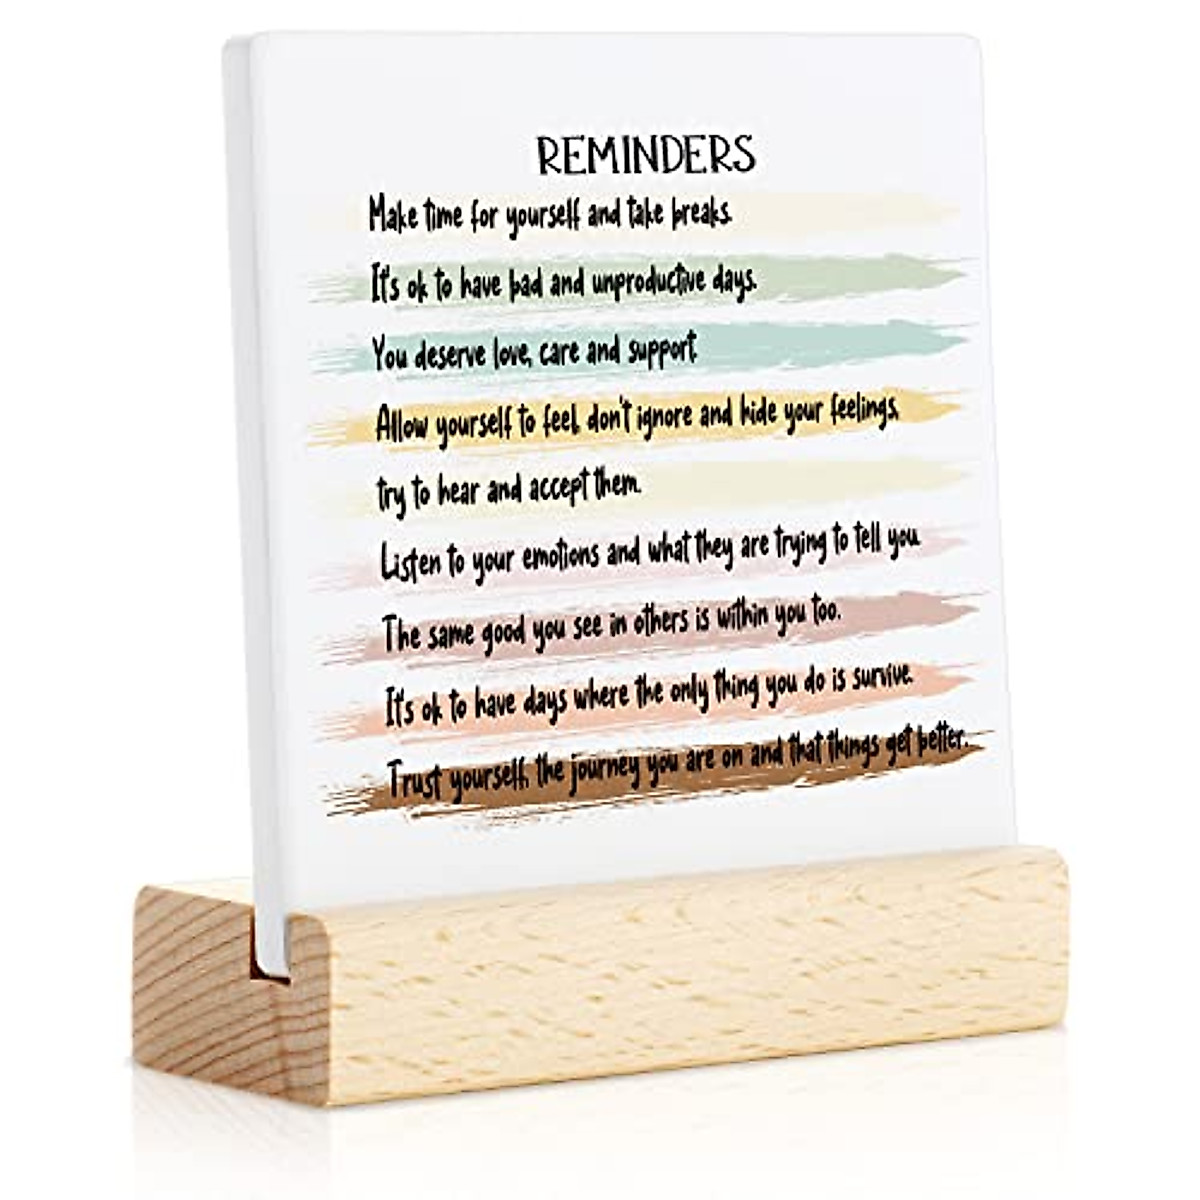 REMINDERS
Make time for yourself and take breaks.
It's ok to have bad and unproductive days.
You deserve love, care and support.
Allow yourself to feel, don't ignore and hide your feelings,
try to hear and accept them.
Listen to your emotions and what they are trying to tell you.
The same good you see in others is within you too.
It's ok to have days where the only thing you do is survive.
Trust yourself, the journey you are on and that things get better.